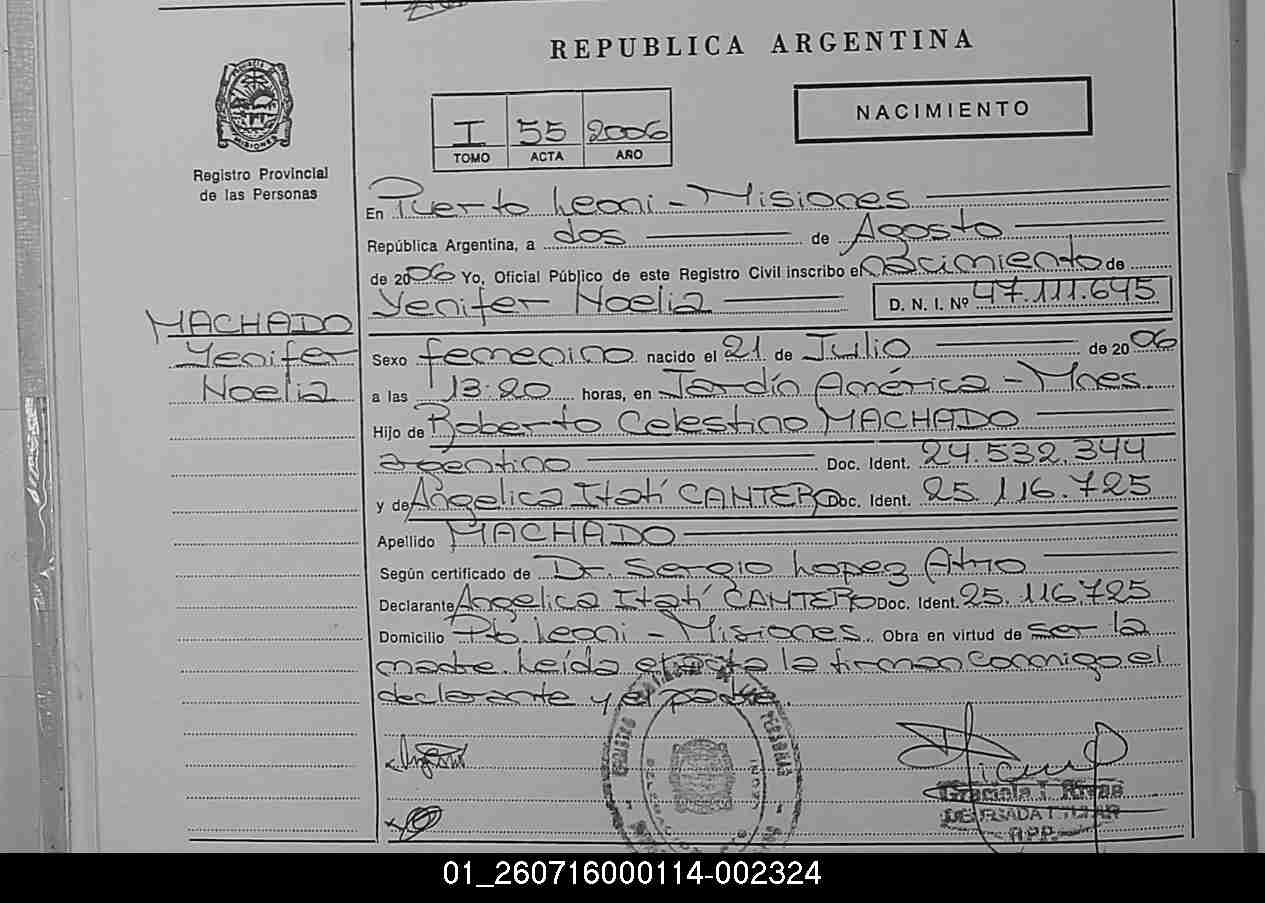 REPUBLICA ARGENTINA
PROVINCIA DE MISIONES
Registro Provincial
de las Personas
I 55 2006
TOMO ACTA AÑO
NACIMIENTO
En Puerto Leoni - Misiones
República Argentina, a dos de Agosto
de 2006 Yo, Oficial Público de este Registro Civil inscribo el nacimiento de
Yenifer Noelia D. N. I. Nº 47.111.645
MACHADO
Yenifer
Noelia
Sexo femenino nacido el 21 de Julio de 2006
a las 13:20 horas, en Jardín América - Mnes.
Hijo de Roberto Celestino MACHADO
argentino Doc. Ident. 24.532.344
y de Angelica Itatí CANTERO Doc. Ident. 25.116.725
Apellido MACHADO
Según certificado de Dr. Sergio Lopez
Declarante Angelica Itatí CANTERO Doc. Ident. 25.116.725
Domicilio Pto. Leoni - Misiones Obra en virtud de ser la
madre. Leída el acta la firman conmigo el
declarante y el padre.
Graciela I. Rivas
DELEGADA TITULAR
R.P.P.
01_260716000114-002324